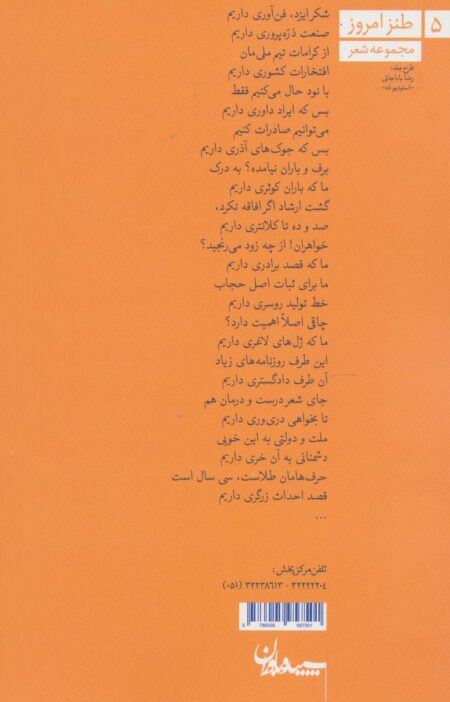 ۵
طنز امروز
مجموعه شعر
طرح جلد:
رضا باباجانی
«استودیو ده»
شکر ایزد، فن‌آوری داریم
صنعت ذرّه‌پروری داریم
از کرامات تیم ملی‌مان
افتخارات کشوری داریم
با نود حال می‌کنیم فقط
بس که ایراد داوری داریم
می‌توانیم صادرات کنیم
بس که جوک‌های آذری داریم
برف و باران نیامده؟ به درک
ما که باران کوثری داریم
گشت ارشاد اگر افاقه نکرد،
صد و ده تا کلانتری داریم
خواهران! از چه زود می‌رنجید؟
ما که قصد برادری داریم
ما برای ثبات اصل حجاب
خط تولید روسری داریم
چاقی اصلاً اهمیت دارد؟
ما که ژل‌های لاغری داریم
این طرف روزنامه‌های زیاد
آن طرف دادگستری داریم
جای شعر درست و درمان هم
تا بخواهی دری‌وری داریم
ملت و دولتی به این خوبی
دشمنانی به آن خری داریم
حرف‌هامان طلاست، سی سال است
قصد احداث زرگری داریم
...
تلفن مرکز پخش:
۳۲۲۲۲۲۰۴ - ۳۲۲۳۸۶۱۳ (۰۵۱)
سپیده‌باوران